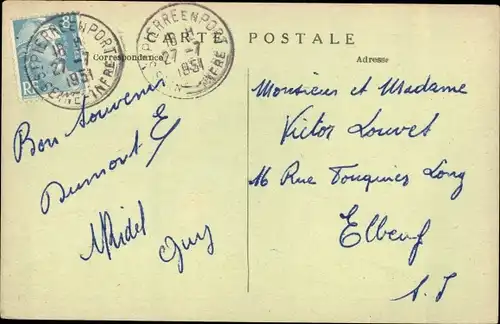 CARTE POSTALE
Correspondance
Adresse
ST PIERRE EN PORT
18 H
27 - 7
1951
SEINE INFRE
ST PIERRE EN PORT
18 H
27 - 7
1951
SEINE INFRE
8F
RF
Bon Souvenir
Dumont E
Midel
Guy
Monsieur et Madame
Victor Louvet
16 Rue Fouquier Long
Elbeuf
S. I